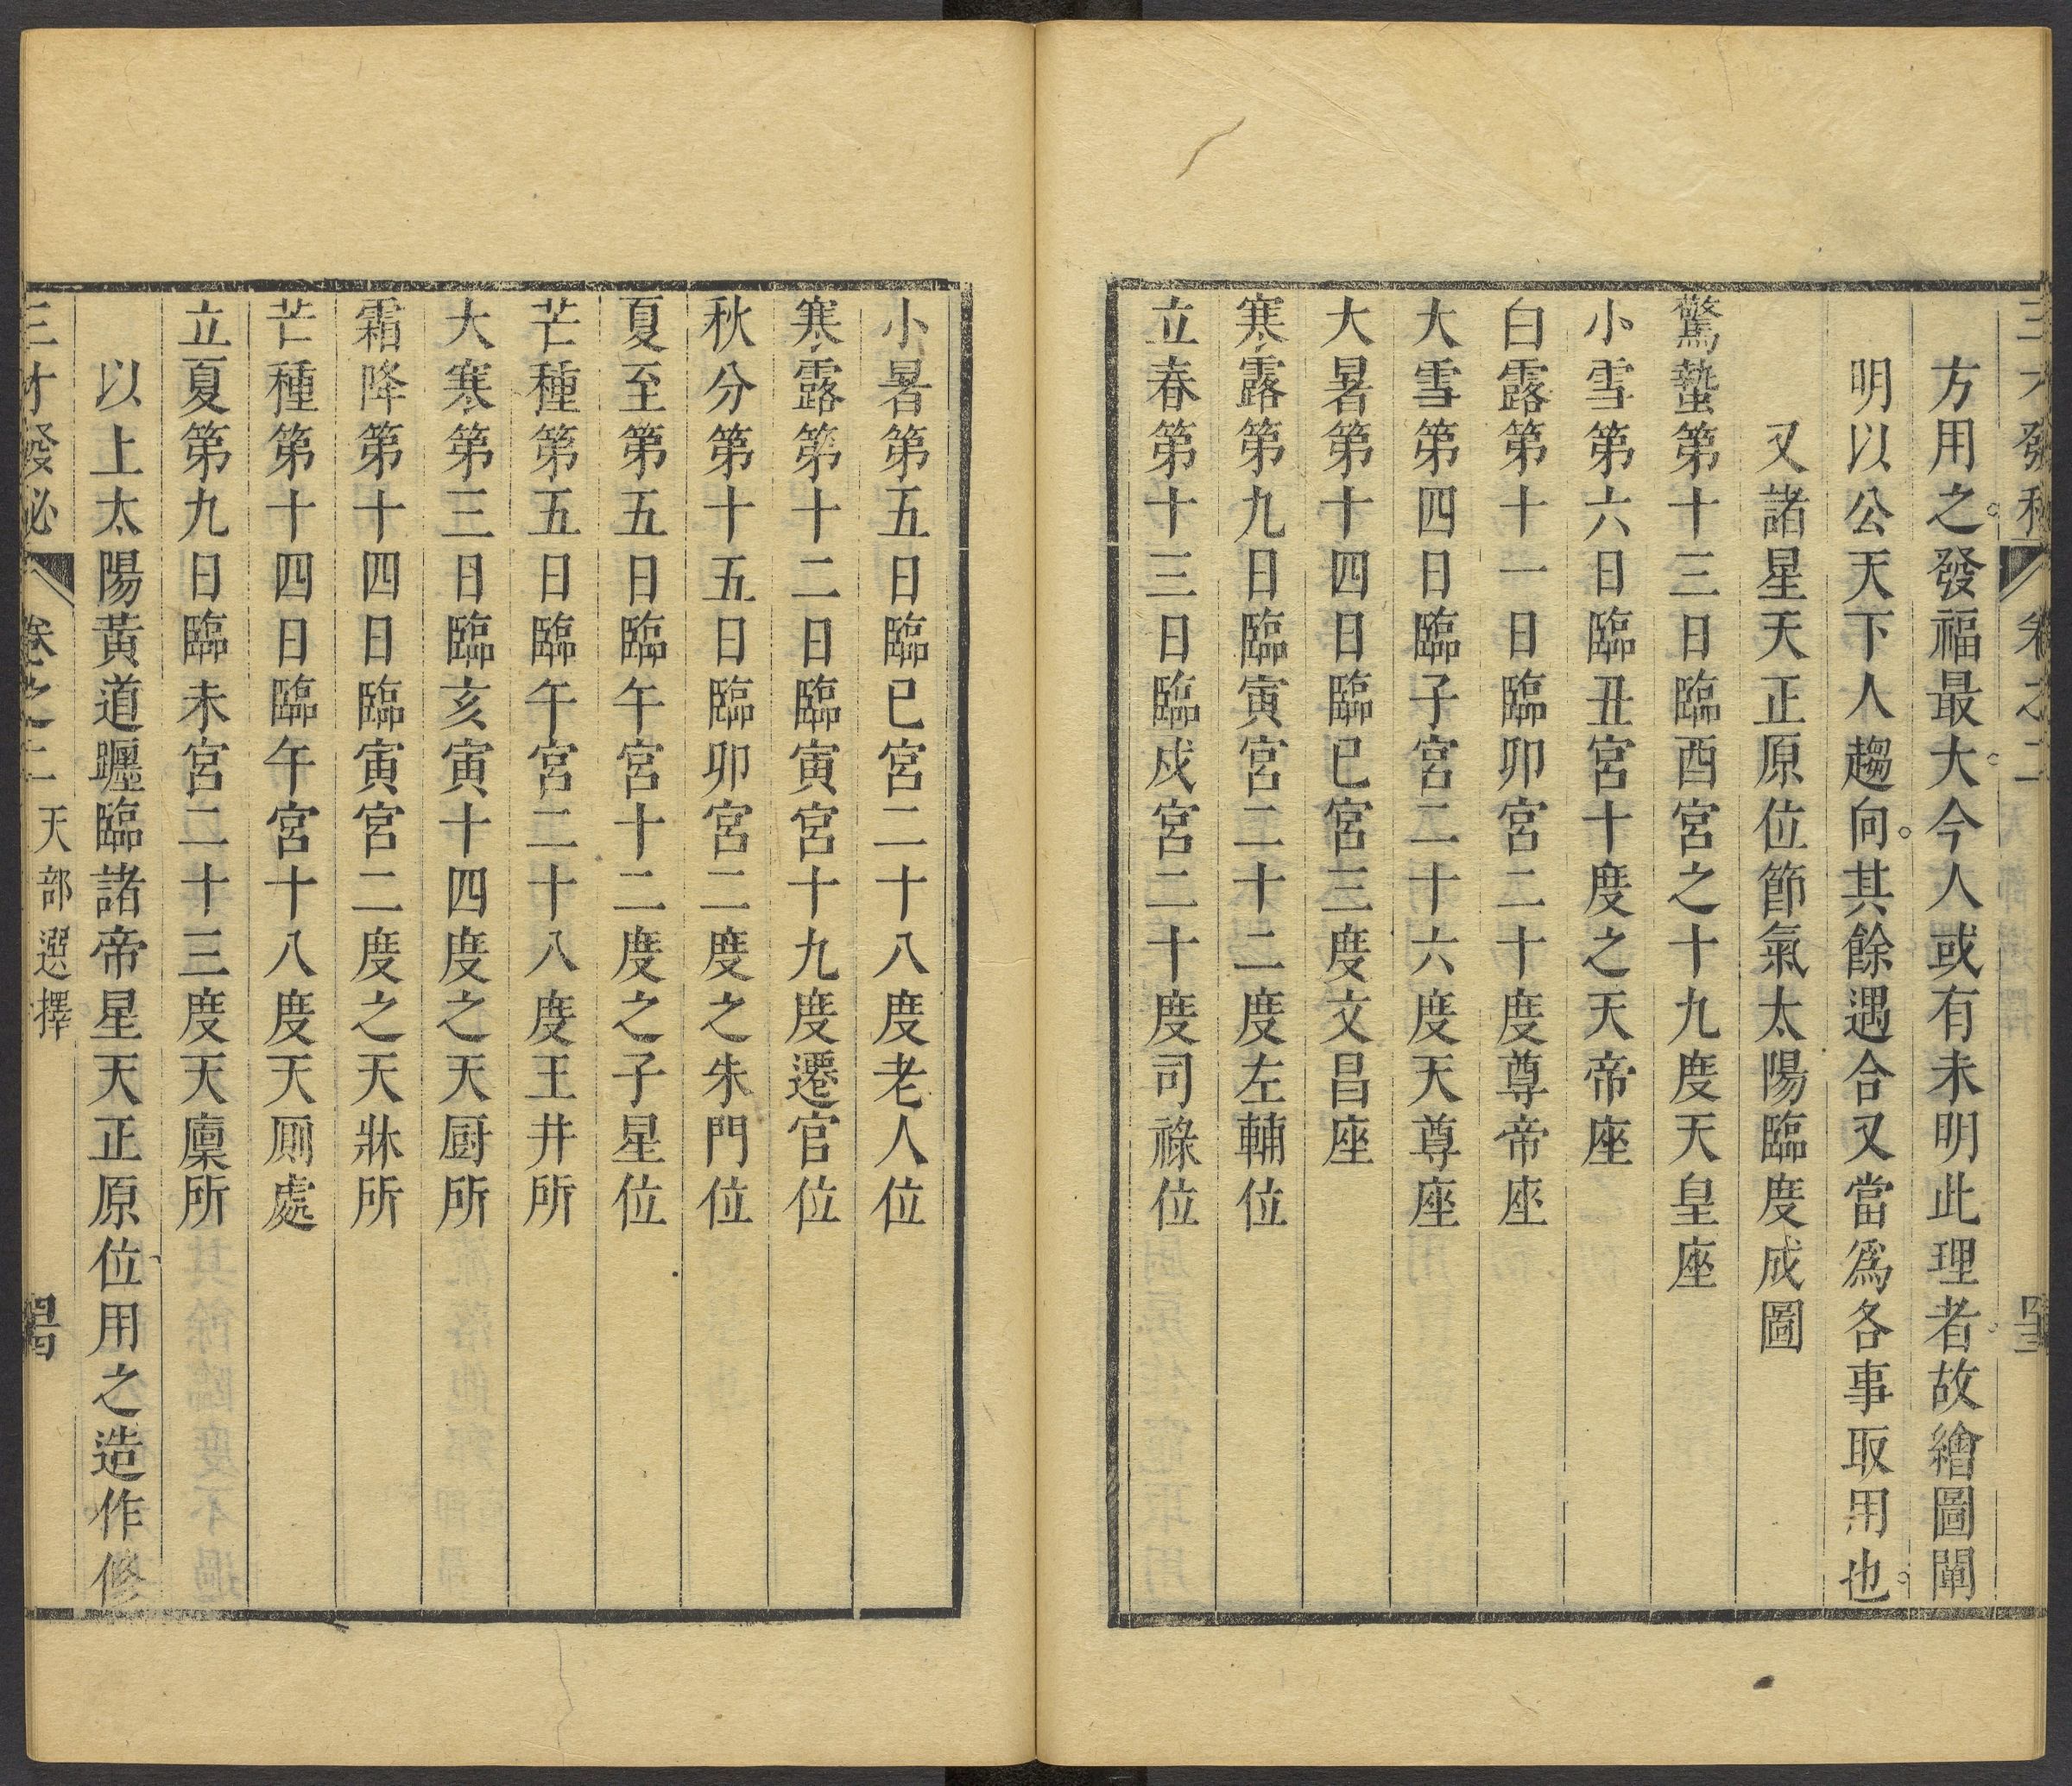 方用之。發福最大。今人或有未明此理者。故繪圖闡
明以公天下人趨向。其餘遇合又當爲各事取用也。
又諸星天正原位節氣太陽臨度成圖
驚蟄第十三日臨酉宮之十九度天皇座
小雪第六日臨丑宮十度之天帝座
白露第十一日臨卯宮二十度尊帝座
大雪第四日臨子宮二十六度天尊座
大暑第十四日臨巳宮三度文昌座
寒露第九日臨寅宮二十二度左輔位
立春第十三日臨戍宮二十度司祿位
小暑第五日臨巳宮二十八度老人位
寒露第十二日臨寅宮十九度遷官位
秋分第十五日臨卯宮二度之朱門位
夏至第五日臨午宮十二度之子星位
芒種第五日臨午宮二十八度王井所
大寒第三日臨亥寅十四度之天厨所
霜降第十四日臨寅宮二度之天牀所
芒種第十四日臨午宮十八度天厠處
立夏第九日臨未宮二十三度天廩所
以上太陽黃道躔臨諸帝星天正原位用之造作修
三才發祕 卷之二 天部選擇 四